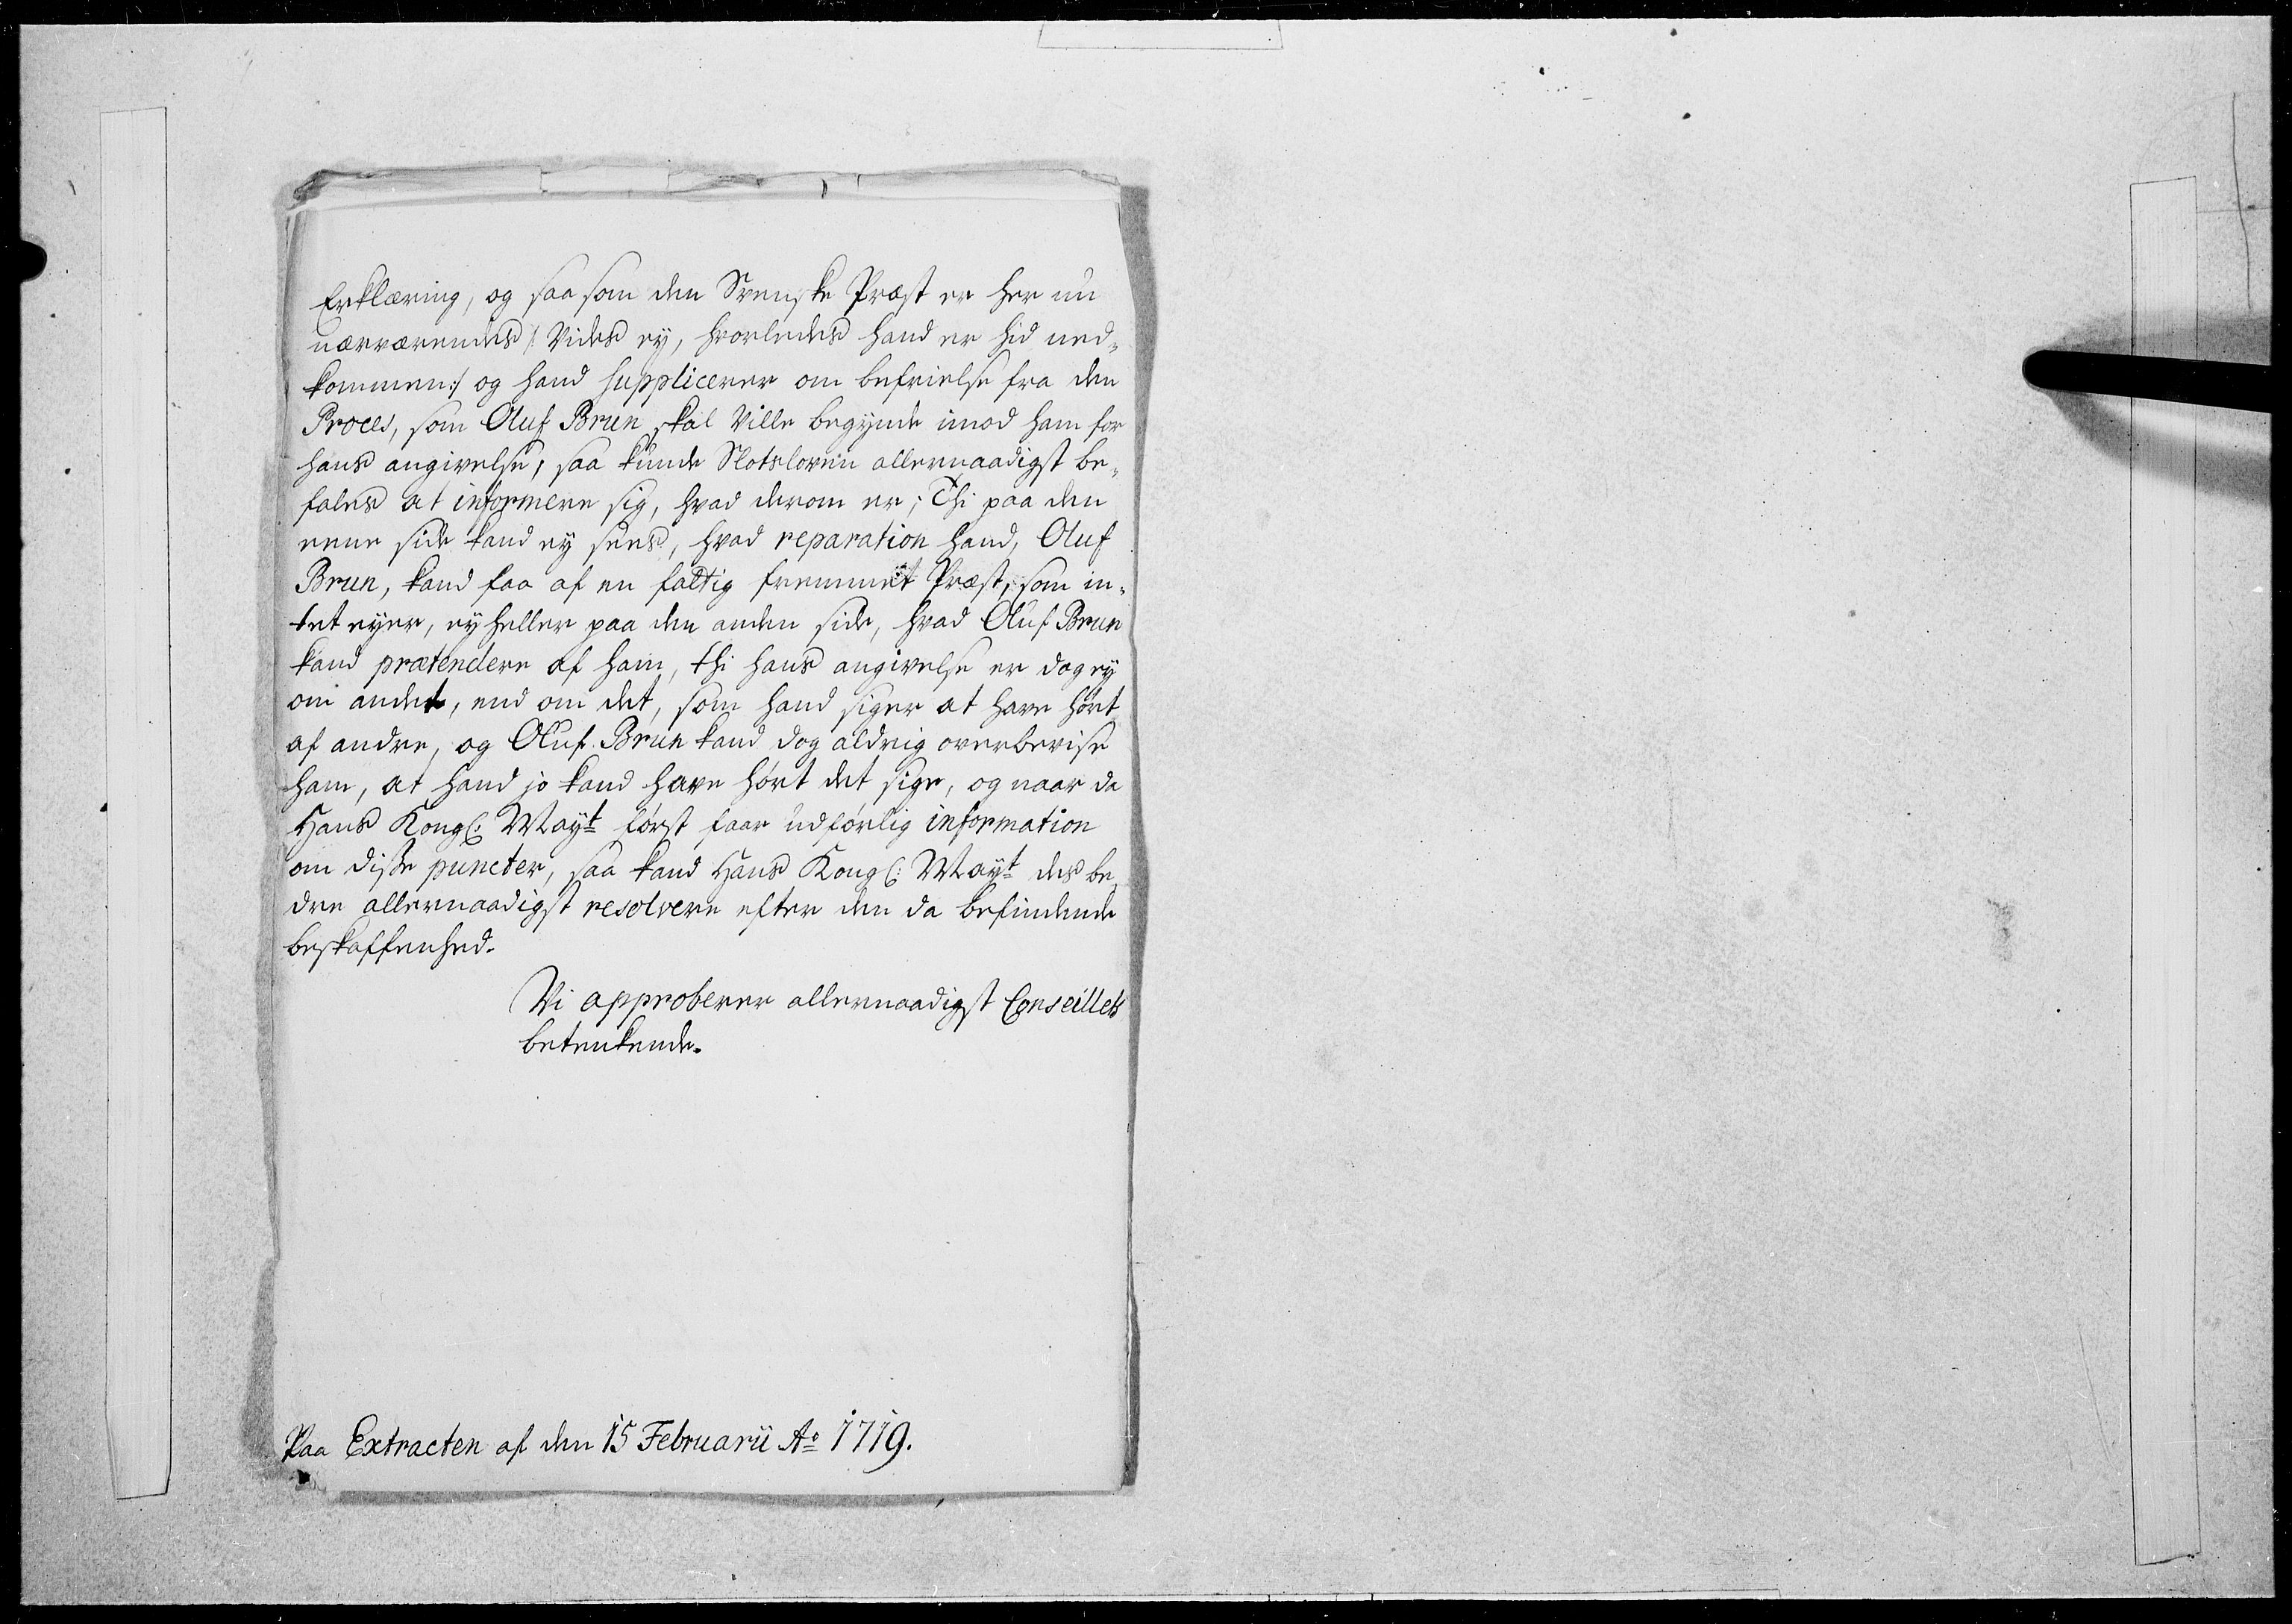 Erklæring, og saa som den Svenske Præst er her nu
nærværendes /: Vides ey, hvorledes hand er hid ned„
kommen:/ og hand supplicerer om befrielse fra den
Proces, som Oluf Brun skal Ville begynde imod ham for
hans angivelse, saa kunde Slotsloven allernaadigst be„
fales at informere sig, hvad derom er; Thi paa den
eene side kand ey sees, hvad reparation hand, Oluf
Brun, kand faa af en fattig fremmet Præst, som in„
tet eyer, ey heller paa den anden side, hvad Oluf Brun
kand prætendere af ham, thi hans angivelse er dog ey
om andet, end om det, som hand siger at have hørt
af andre, og Oluf Brun kand dog aldrig overbevise
ham, at hand jo kand have hørt det sige, og naar da
Hans Kongl: Mayt først faar udførlig information
om disse puncter, saa kand Hans Kongl: Mayt des be„
dre allernaadigst resolvere efter den da befindende
beskaffenhed.
Vi approberer allernaadigst Conseillets
betenkende.
Paa Extracten af den 15 Februarii Ao 1719.